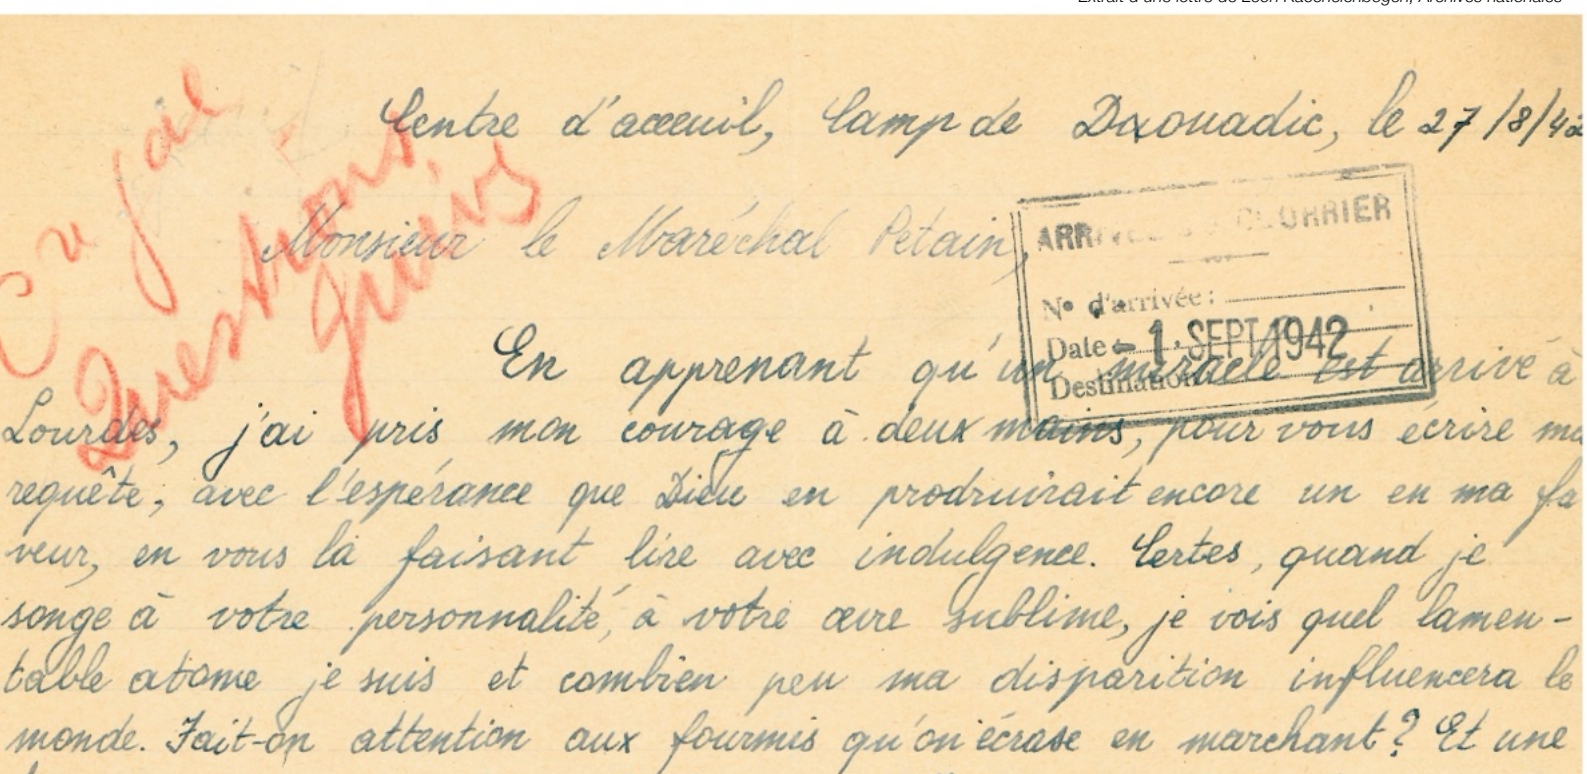 Extrait d'une lettre de Léon Archives nationales
Centre d'acceuil, Camp de Douadic, le 27/8/42
Questions juives
Monsieur le Maréchal Petain,
ARRIVÉE DU COURRIER
N° d'arrivée :
Date - 1. SEPT 1942
Destination
En apprenant qu'un miracle est arrivé à
Lourdes, j'ai pris mon courage à deux mains, pour vous écrire ma
requête, avec l'espérance que Dieu en prodruirait encore un en ma fa
veur, en vous la faisant lire avec indulgence. Certes, quand je
songe à votre personnalité, à votre œvre sublime, je vois quel lamen-
table atome je suis et combien peu ma disparition influencera le
monde. Fait-on attention aux fourmis qu'on écrase en marchant? Et une